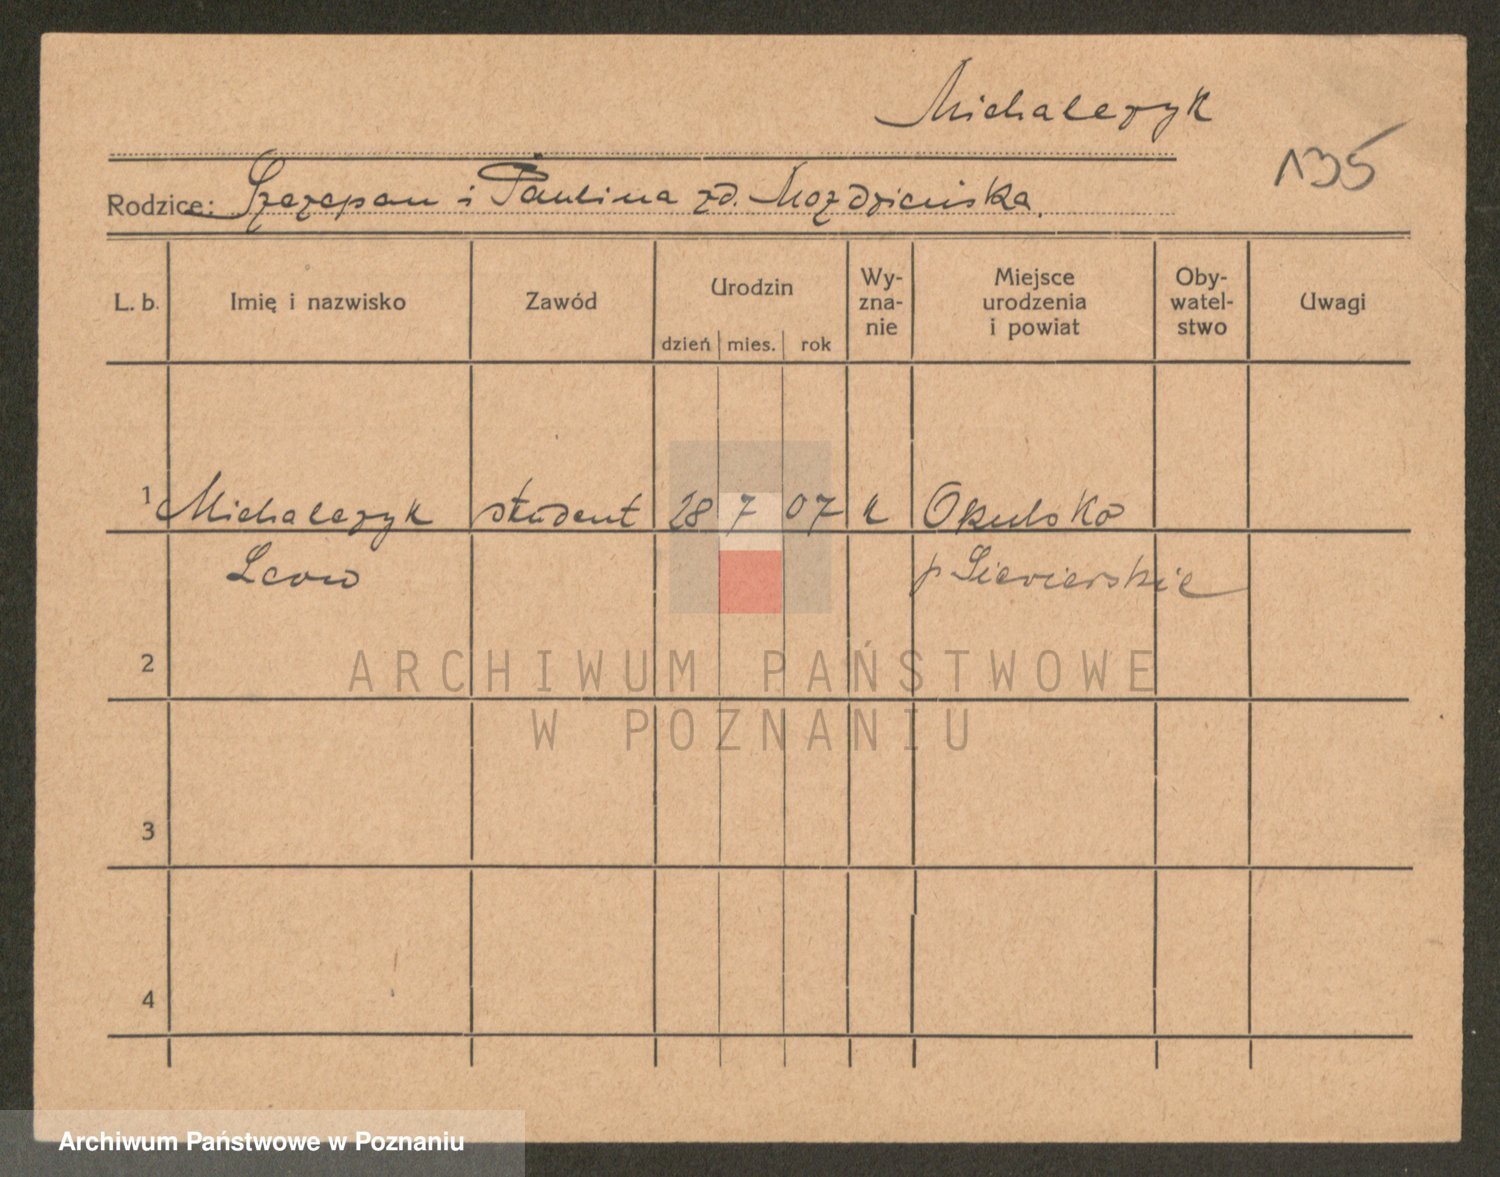 Michalczyk
135
Rodzice: Szczepan i Paulina zd. Mozdzieńska.
L. b. Imię i nazwisko Zawód Urodzin dzień mies. rok Wy-zna-nie Miejsce urodzenia i powiat Oby-watel-stwo Uwagi
1 Michalczyk student 28 7 07 k
Leon
2
ARCHIWUM PAŃSTWOWE
W POZNANIU
3
4
Archiwum Państwowe w Poznaniu